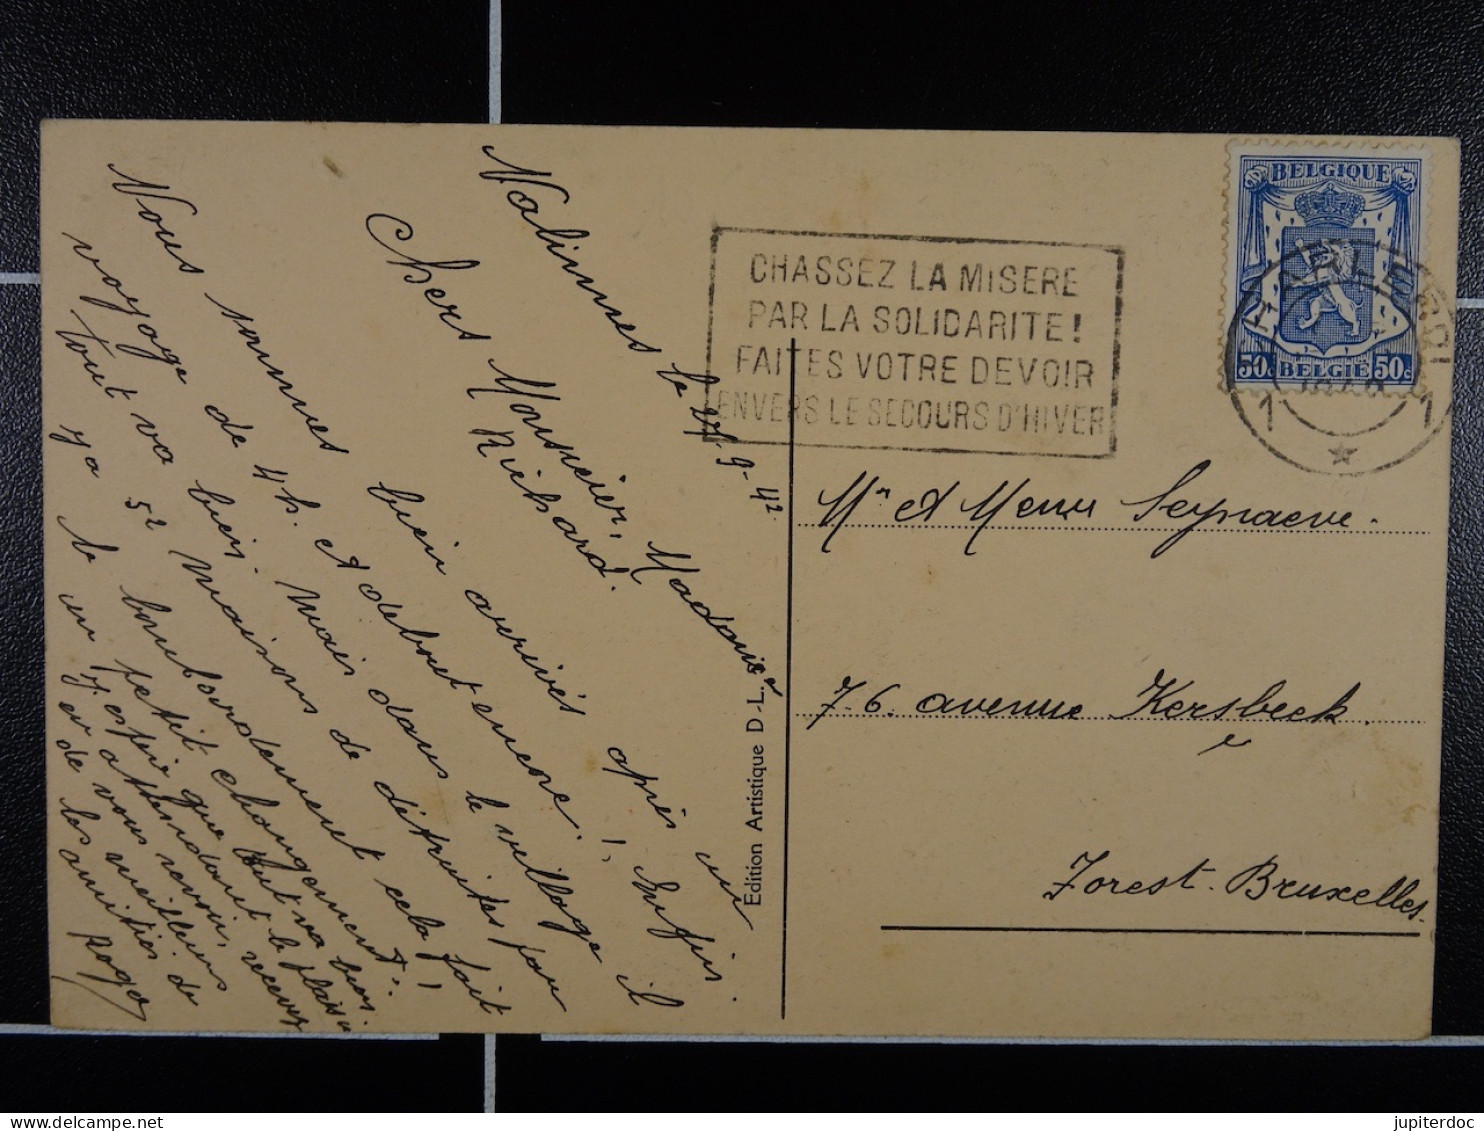 Nalinnes le 27-9-42
Chers Monsieur, Madame
Richard.
Nous sommes bien arrivés après un
voyage de 4h. et debout encore. ! Enfin.
Tout va bien. Mais dans le village il
y a 52 maisons de détruites par
le bombardement cela fait
un petit changement. !
J'espère que tout va bien.
en attendant le plaisir
de vous revoir, recevez
les meilleurs
amitiés de
Roger
Edition Artistique D -L.
CHASSEZ LA MISERE
PAR LA SOLIDARITE!
FAITES VOTRE DEVOIR
ENVERS LE SECOURS D'HIVER
BELGIQUE
50c BELGIË 50c
CHARLEROI
1 1
Mr et Mme Seynaeve.
76. avenue Kersbeek.
Forest-Bruxelles.
jupiterdoc